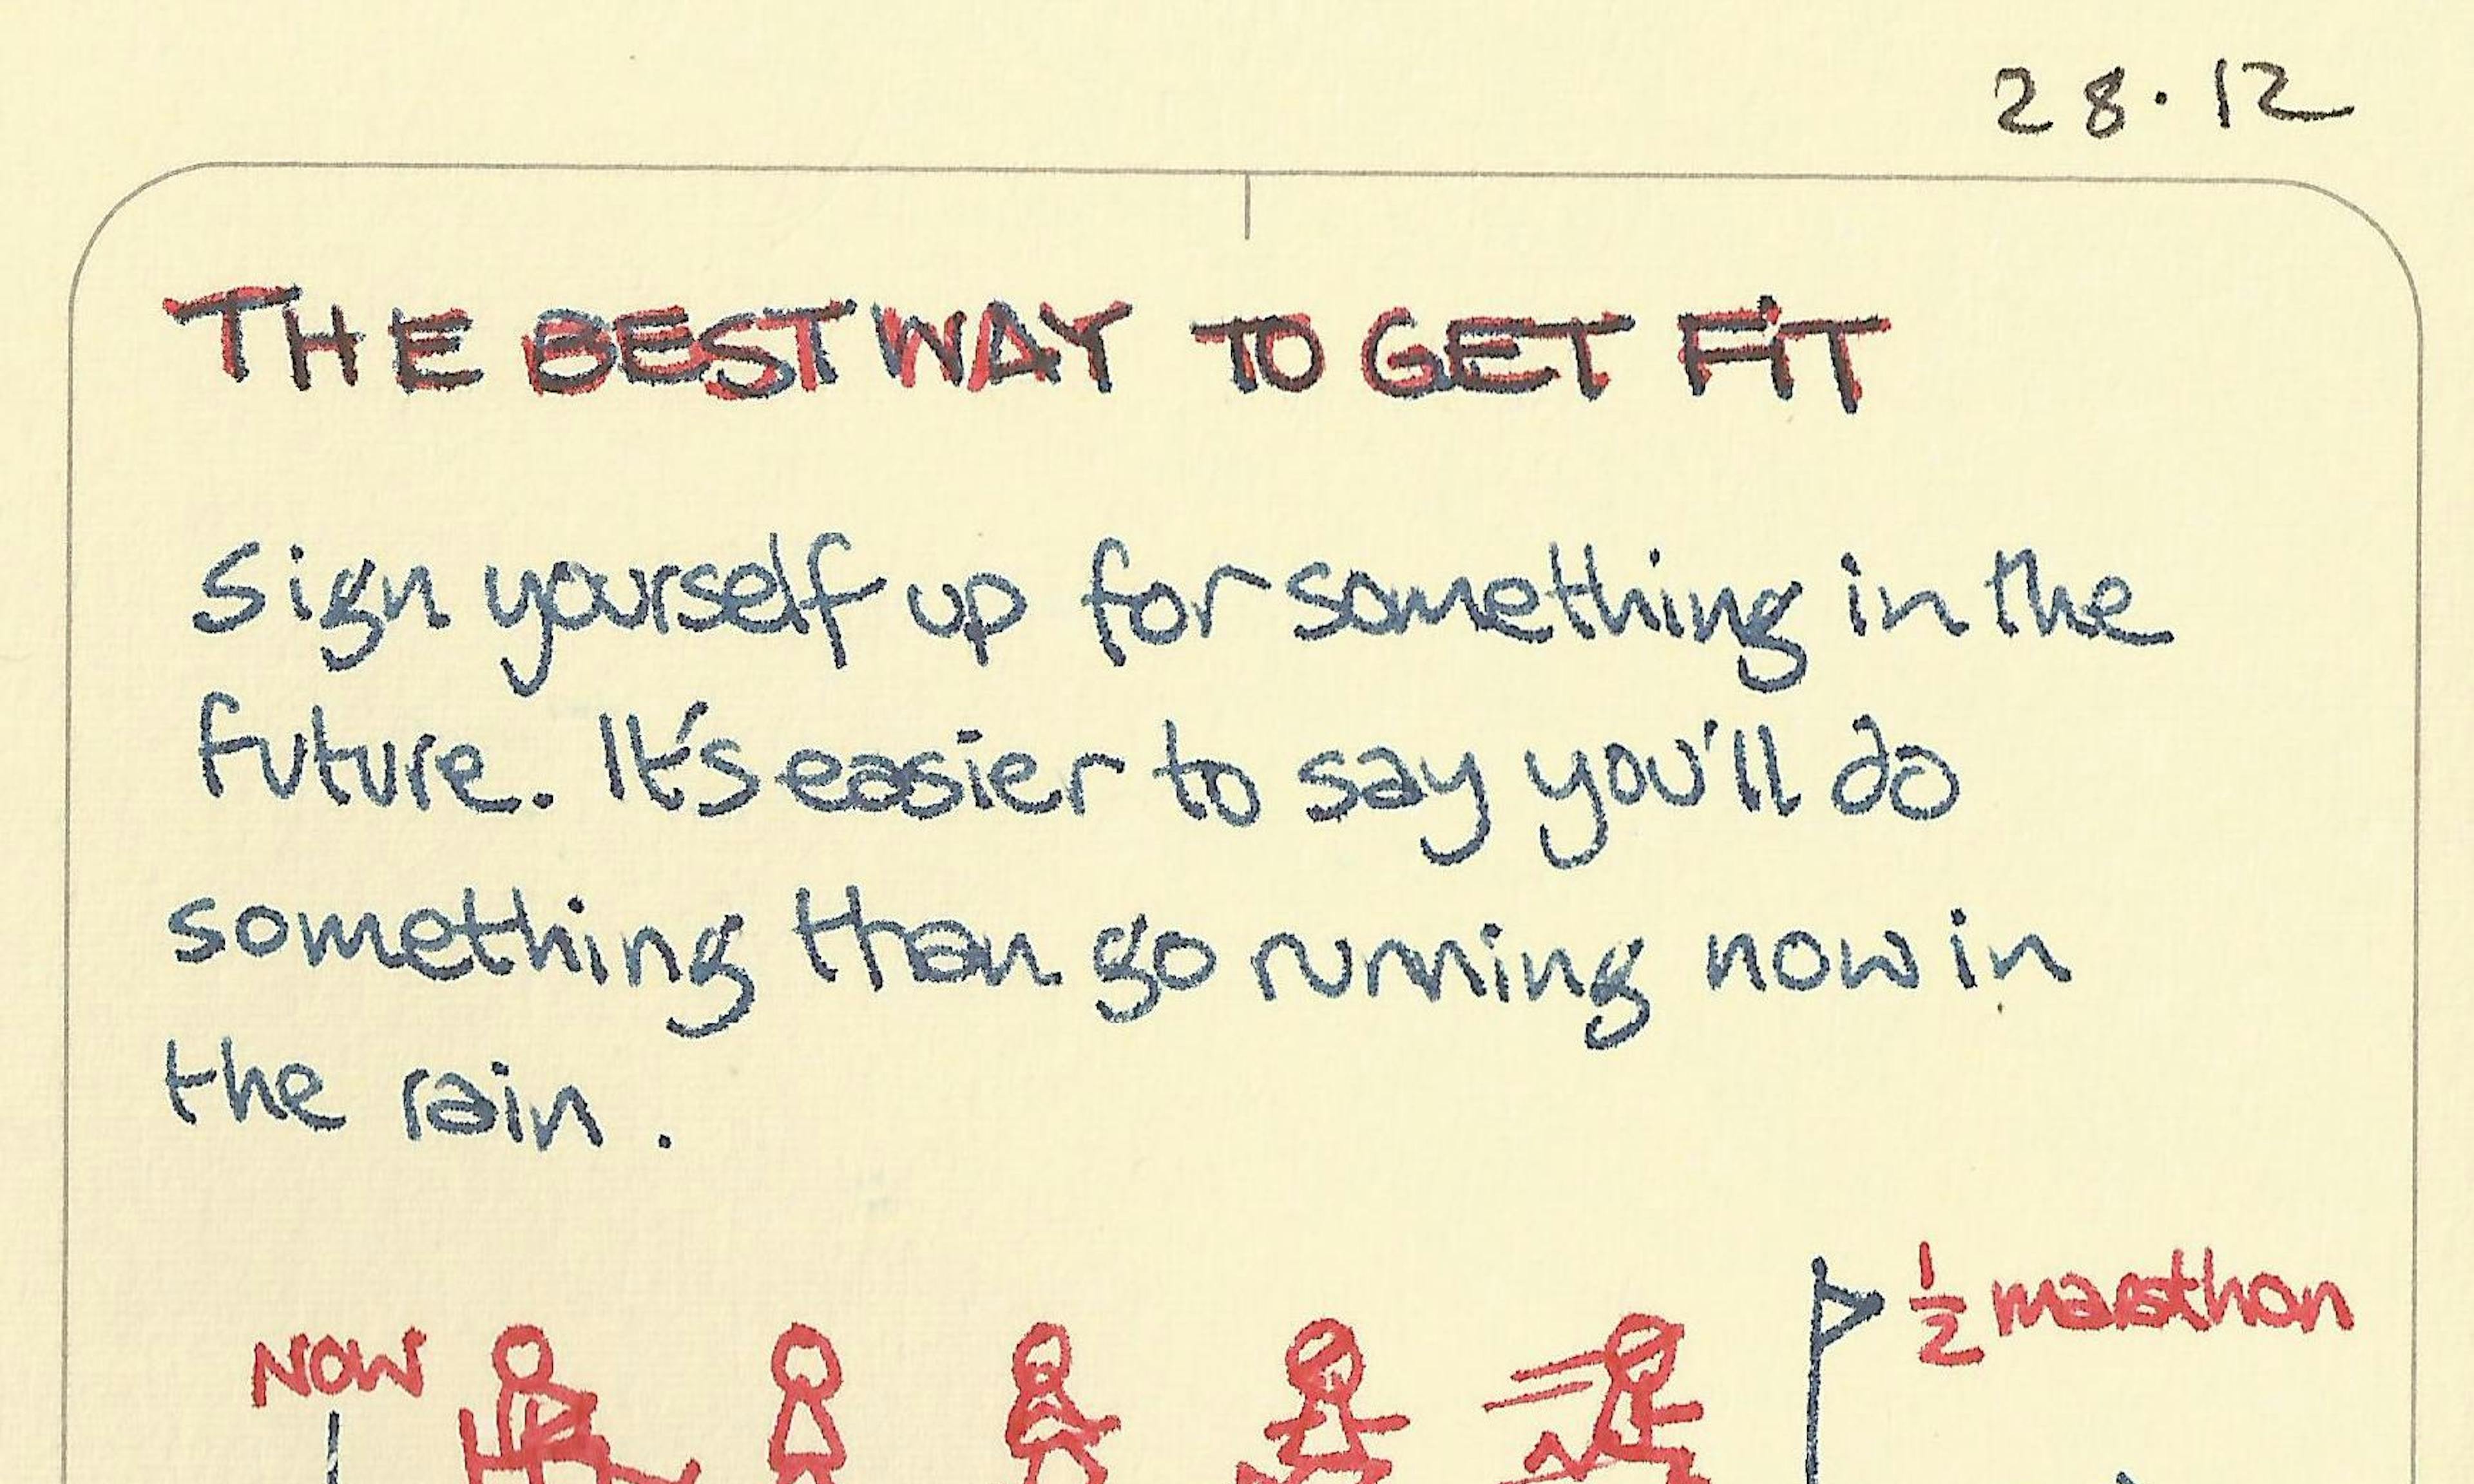 28.12
THE BEST WAY TO GET FIT
Sign yourself up for something in the
future. It's easier to say you'll do
something than go running now in
the rain.
NOW
½ marathon